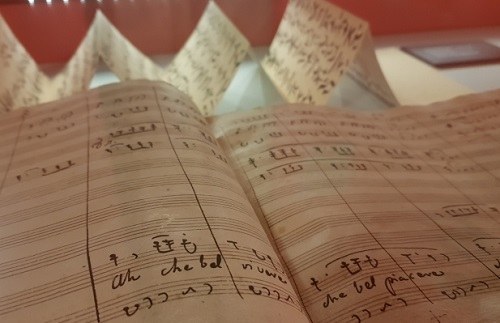 Ah che bel vivere
che bel piacere